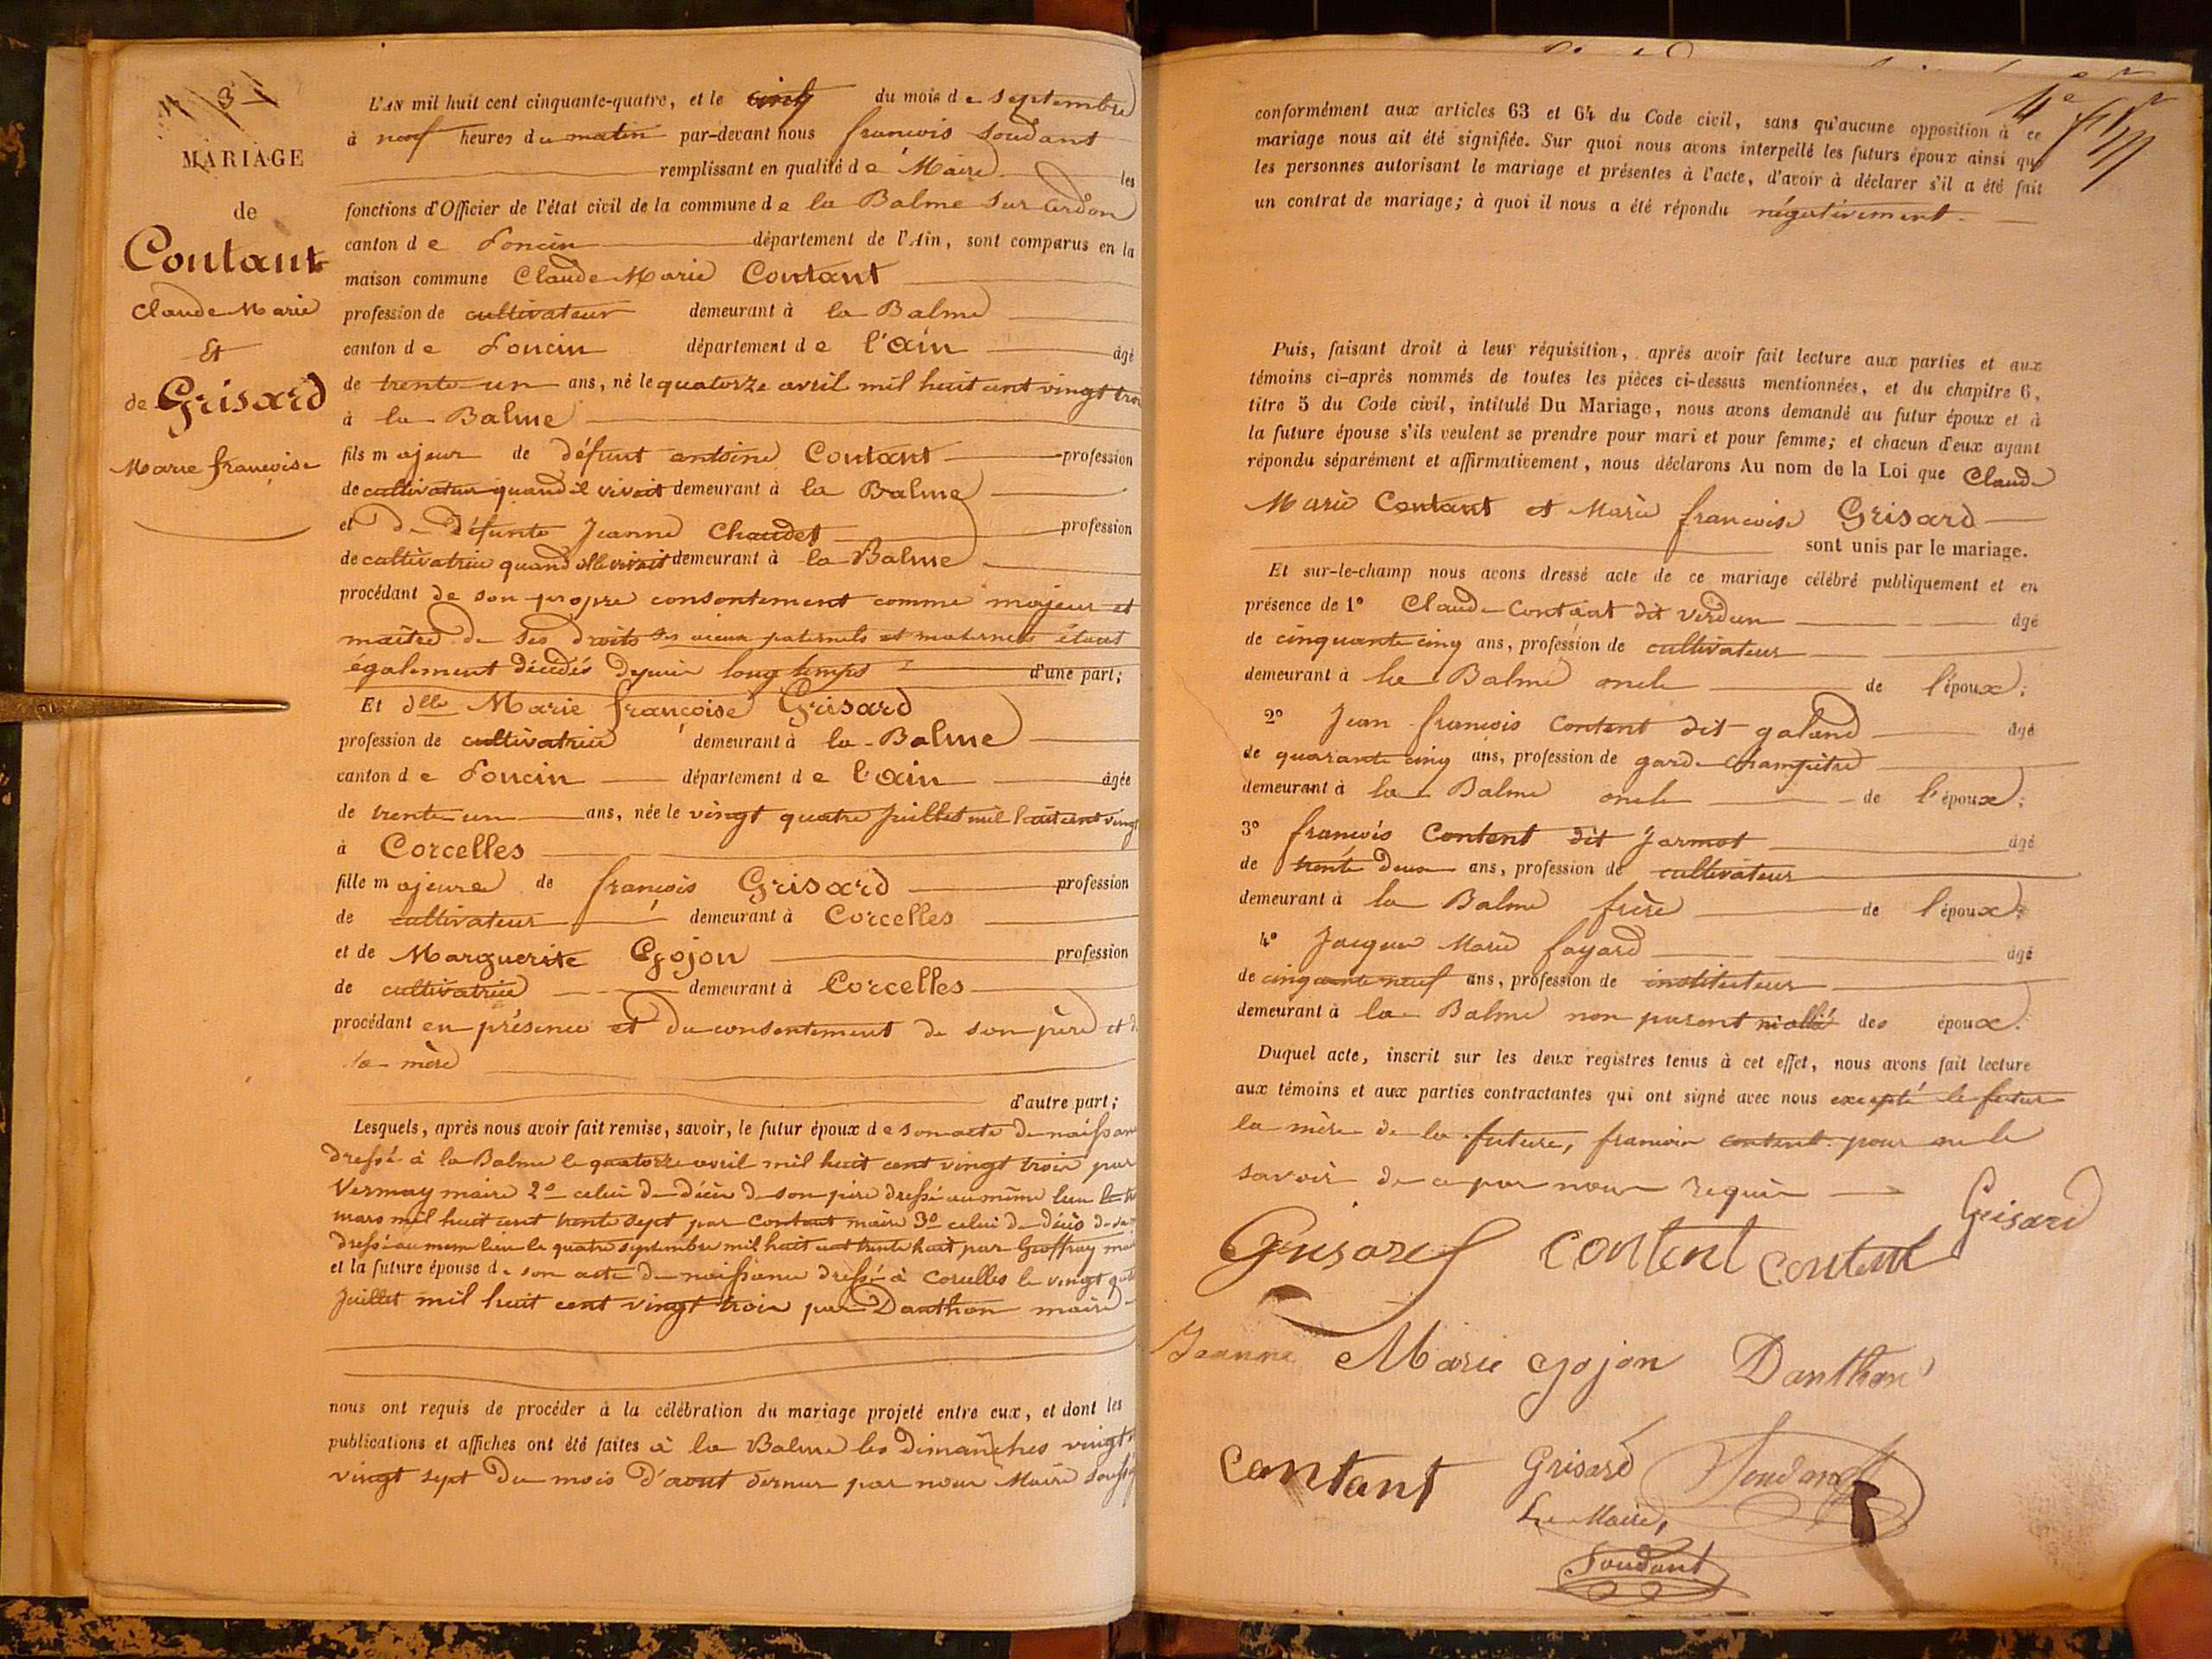 3
MARIAGE
de
Contant
Claude Marie
Et
de Grisard
Marie françoise
L'AN mil huit cent cinquante-quatre, et le cinq du mois de septembre
à neuf heures du matin par-devant nous françois Soudant
remplissant en qualité de Maire les
fonctions d'Officier de l'état civil de la commune de la Balme sur Cerdon
canton de Poncin département de l'Ain, sont comparus en la
maison commune Claude Marie Contant
profession de cultivateur demeurant à la Balme
canton de Poncin département de l'Ain âgé
de trente un ans, né le quatorze avril mil huit cent vingt trois
à la Balme
fils majeur de défunt antoine Contant profession
de cultivateur quand il vivait demeurant à la Balme
et De défunte Jeanne Chaudet profession
de cultivatrice quand elle vivait demeurant à la Balme
procédant de son propre consentement comme majeur et
maitre de ses droits ses aieux paternels et maternels étant
également décédés depuis long temps d'une part;
Et dlle Marie françoise Grisard
profession de cultivatrice demeurant à la Balme
canton de Poncin département de l'ain âgée
de trente un ans, née le vingt quatre juillet mil huit cent vingt
à Corcelles
fille majeure de françois Grisard profession
de cultivateur demeurant à Corcelles
et de Marguerite Gojon profession
de cultivatrice demeurant à Corcelles
procédant en présence et du consentement de son père et d
sa mère
d'autre part;
Lesquels, après nous avoir fait remise, savoir, le futur époux de son acte de naissan
dressé à la Balme le quatorze avril mil huit cent vingt trois par
Vermay maire 2o celui de décès de son père dressé au même lieu le
mars mil huit cent trente sept par Contant maire 3o celui de décès de sa
dressé au mem lieu le quatre septembre mil huit cent trente huit par Geoffray
et la future épouse de son acte de naissance dressé à Corcelles le vingt
juillet mil huit cent vingt trois par Danthon maire
nous ont requis de procéder à la célébration du mariage projeté entre eux, et dont les
publications et affiches ont été faites à la Balme les dimanches vingt
vingt sept du mois d'aout dernier par nous Maire souss
4e
conformément aux articles 63 et 64 du Code civil, sans qu'aucune opposition à ce
mariage nous ait été signifiée. Sur quoi nous avons interpellé les futurs époux ainsi que
les personnes autorisant le mariage et présentes à l'acte, d'avoir à déclarer s'il a été fait
un contrat de mariage; à quoi il nous a été répondu négativement.
Puis, faisant droit à leur réquisition, après avoir fait lecture aux parties et aux
témoins ci-après nommés de toutes les pièces ci-dessus mentionnées, et du chapitre 6,
titre 5 du Code civil, intitulé Du Mariage, nous avons demandé au futur époux et à
la future épouse s'ils veulent se prendre pour mari et pour femme; et chacun d'eux ayant
répondu séparément et affirmativement, nous déclarons Au nom de la Loi que Claude
Marie Contant et Marie francoise Grisard
sont unis par le mariage.
Et sur-le-champ nous avons dressé acte de ce mariage célébré publiquement et en
présence de 1o Claude Contant dit Verdun âgé
de cinquante cinq ans, profession de cultivateur
demeurant à La Balme oncle de l'époux;
2o Jean françois Contant dit galand âgé
de quarante cinq ans, profession de garde champêtre
demeurant à la Balme oncle de l'époux;
3o françois Content dit Jarmot âgé
de trente deux ans, profession de cultivateur
demeurant à la Balme frère de l'époux;
4o Jacques Marie fayard âgé
de cinquante neuf ans, profession de instituteur
demeurant à la Balme non parent ni allié des époux.
Duquel acte, inscrit sur les deux registres tenus à cet effet, nous avons fait lecture
aux témoins et aux parties contractantes qui ont signé avec nous excepté le futur
la mère de la future, francois content pour ne le
savoir de ce par nous requis
Grisard
Grisard content content
Jeanne Marie gojon Danthon
Contant Grisard Soudant
Le Maire,
Soudant